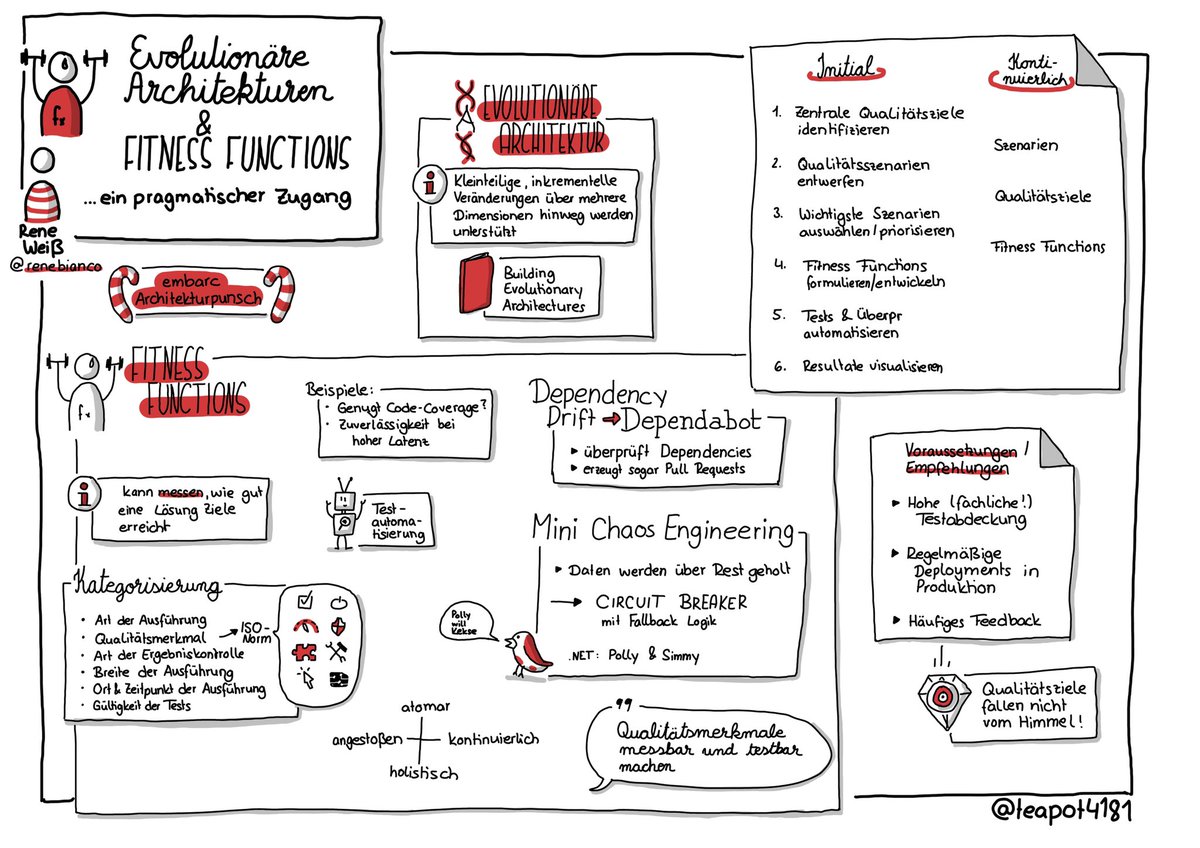 Evolutionäre
Architekturen
&
FITNESS FUNCTIONS
...ein pragmatischer Zugang
fx
Rene
Weiß
@renebianco
embarc
Architekturpunsch
EVOLUTIONÄRE
ARCHITEKTUR
i
Kleinteilige, inkrementelle
Veränderungen über mehrere
Dimensionen hinweg werden
unterstützt
Building
Evolutionary
Architectures
Initial
1. Zentrale Qualitätsziele
identifizieren
2. Qualitätsszenarien
entwerfen
3. Wichtigste Szenarien
auswählen/priorisieren
4. Fitness Functions
formulieren/entwickeln
5. Tests & Überpr
automatisieren
6. Resultate visualisieren
Konti-
nuierlich
Szenarien
Qualitätsziele
Fitness Functions
FITNESS
FUNCTIONS
fx
i
kann messen, wie gut
eine Lösung Ziele
erreicht
Beispiele:
· Genügt Code-Coverage?
· Zuverlässigkeit bei
hoher Latenz
Test-
automa-
tisierung
Kategorisierung
· Art der Ausführung
· Qualitätsmerkmal → ISO-
Norm
· Art der Ergebniskontrolle
· Breite der Ausführung
· Ort & Zeitpunkt der Ausführung
· Gültigkeit der Tests
atomar
angestoßen
kontinuierlich
holistisch
Dependency
Drift → Dependabot
▸ überprüft Dependencies
▸ erzeugt sogar Pull Requests
Mini Chaos Engineering
▸ Daten werden über Rest geholt
→ CIRCUIT BREAKER
mit Fallback Logik
.NET: Polly & Simmy
Polly
will
Kekse
"
Qualitätsmerkmale
messbar und testbar
machen
Voraussetzungen /
Empfehlungen
▸ Hohe (fachliche!)
Testabdeckung
▸ Regelmäßige
Deployments in
Produktion
▸ Häufiges Feedback
Qualitätsziele
fallen nicht
vom Himmel!
@teapot4181